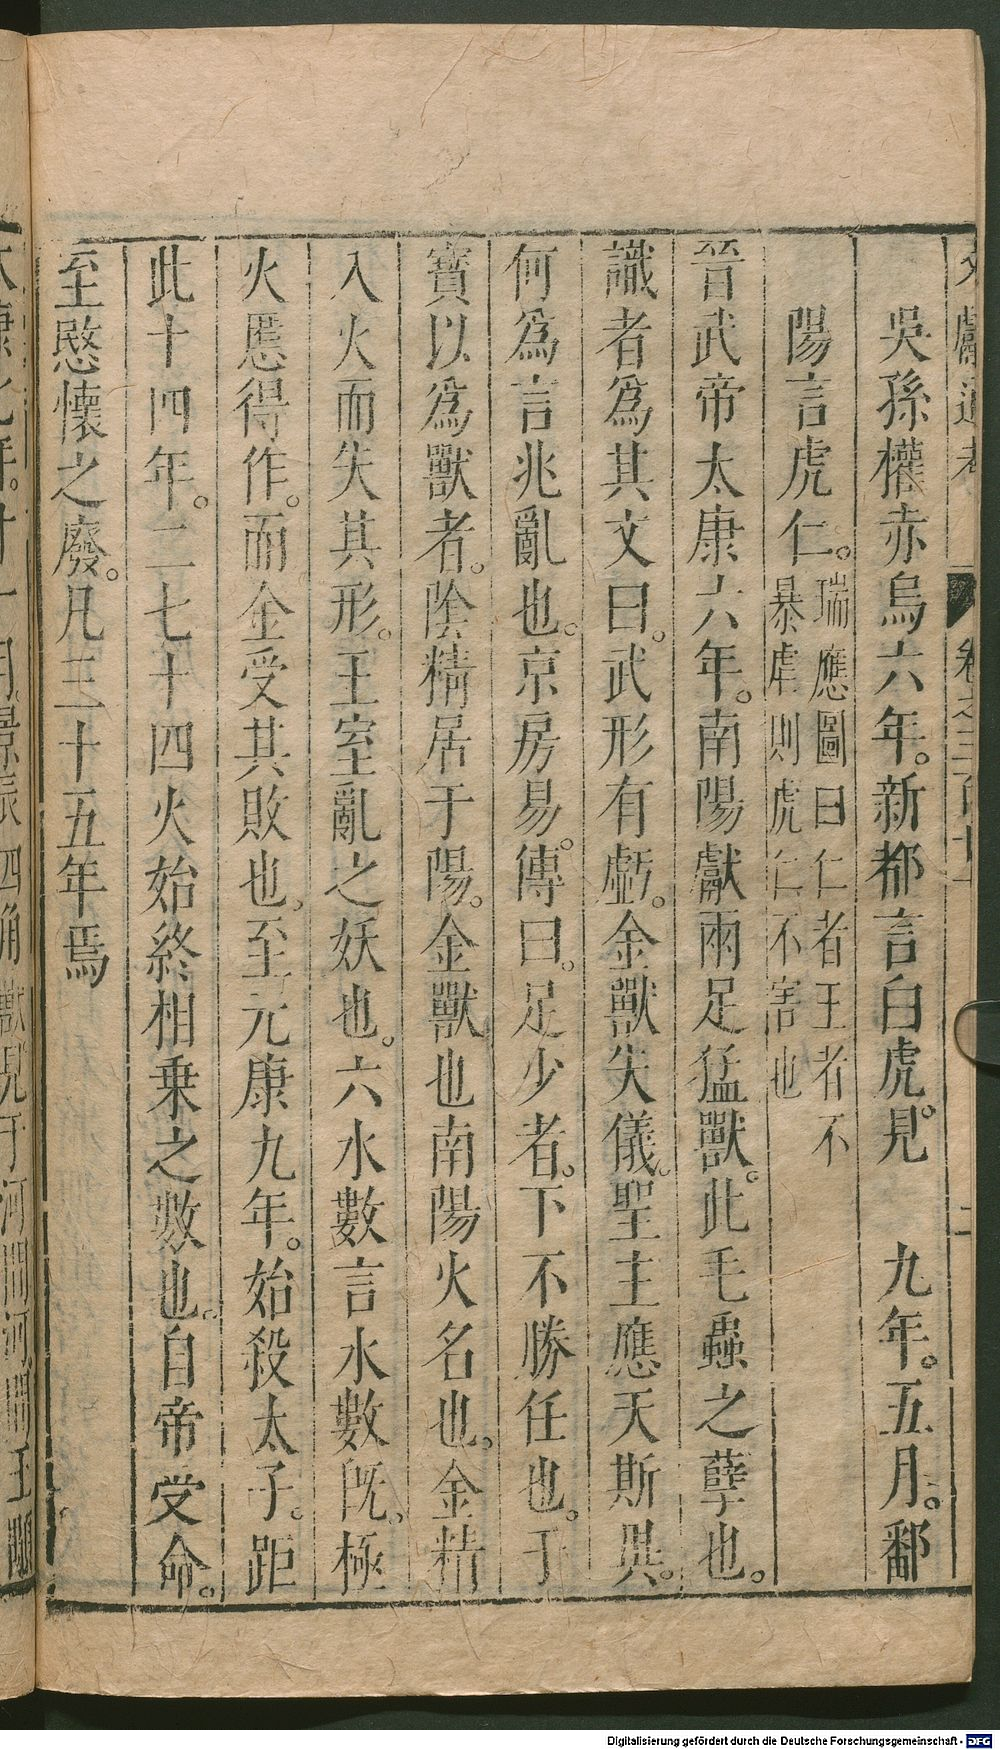 文獻通考 卷之三百十一 二
吳孫權赤烏六年。新都言白虎見。 九年。五月。鄱
陽言虎仁。瑞應圖曰仁者王者不
暴虐則虎仁不害也
晉武帝太康六年。南陽獻兩足猛獸。此毛蟲之孽也。
識者爲其文曰。武形有虧。金獸失儀。聖主應天斯異。
何爲言兆亂也。京房易。傳曰。足少者。下不勝任也。于
寶以爲獸者。陰精居于陽。金獸也南陽火名也。金精
入火而失其形。王室亂之妖也。六水數言水數旣。極
火慝得作。而金受其敗也。至元康九年。始殺太子。距
此十四年。二七十四火始終相乗之數也。自帝受命。
至愍懷之廢。凡三十五年焉
太康九年。十一月。景辰四角獸見于河間河。間王顒
Digitalisierung gefördert durch die Deutsche Forschungsgemeinschaft - DFG